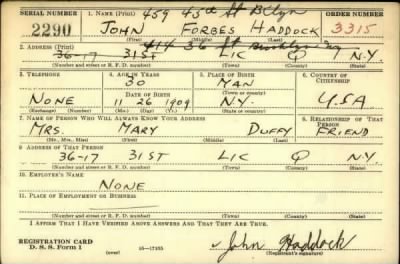 SERIAL NUMBER 1. NAME (Print) 459 45th St Bklyn ORDER NUMBER
2290 JOHN FORBES HADDOCK 3315
(First) (Middle) (Last)
2. ADDRESS (Print) 414 36 St Brooklyn NY
36-17 31ST LIC Q N.Y.
(Number and street or R. F. D. number) (Town) (County) (State)
3. TELEPHONE 4. AGE IN YEARS 5. PLACE OF BIRTH 6. COUNTRY OF CITIZENSHIP
30 MAN
DATE OF BIRTH (Town or county)
NONE 11 26 1909 N.Y. USA
(Exchange) (Number) (Mo.) (Day) (Yr.) (State or country)
7. NAME OF PERSON WHO WILL ALWAYS KNOW YOUR ADDRESS 8. RELATIONSHIP OF THAT PERSON
MRS. MARY DUFFY FRIEND
(Mr., Mrs., Miss) (First) (Middle) (Last)
9. ADDRESS OF THAT PERSON
36-17 31ST LIC Q N.Y.
(Number and street or R. F. D. number) (Town) (County) (State)
10. EMPLOYER'S NAME
NONE
11. PLACE OF EMPLOYMENT OR BUSINESS
(Number and street or R. F. D. number) (Town) (County) (State)
I AFFIRM THAT I HAVE VERIFIED ABOVE ANSWERS AND THAT THEY ARE TRUE.
REGISTRATION CARD
D. S. S. Form 1 (over) 16—17105 John Haddock
(Registrant's signature)